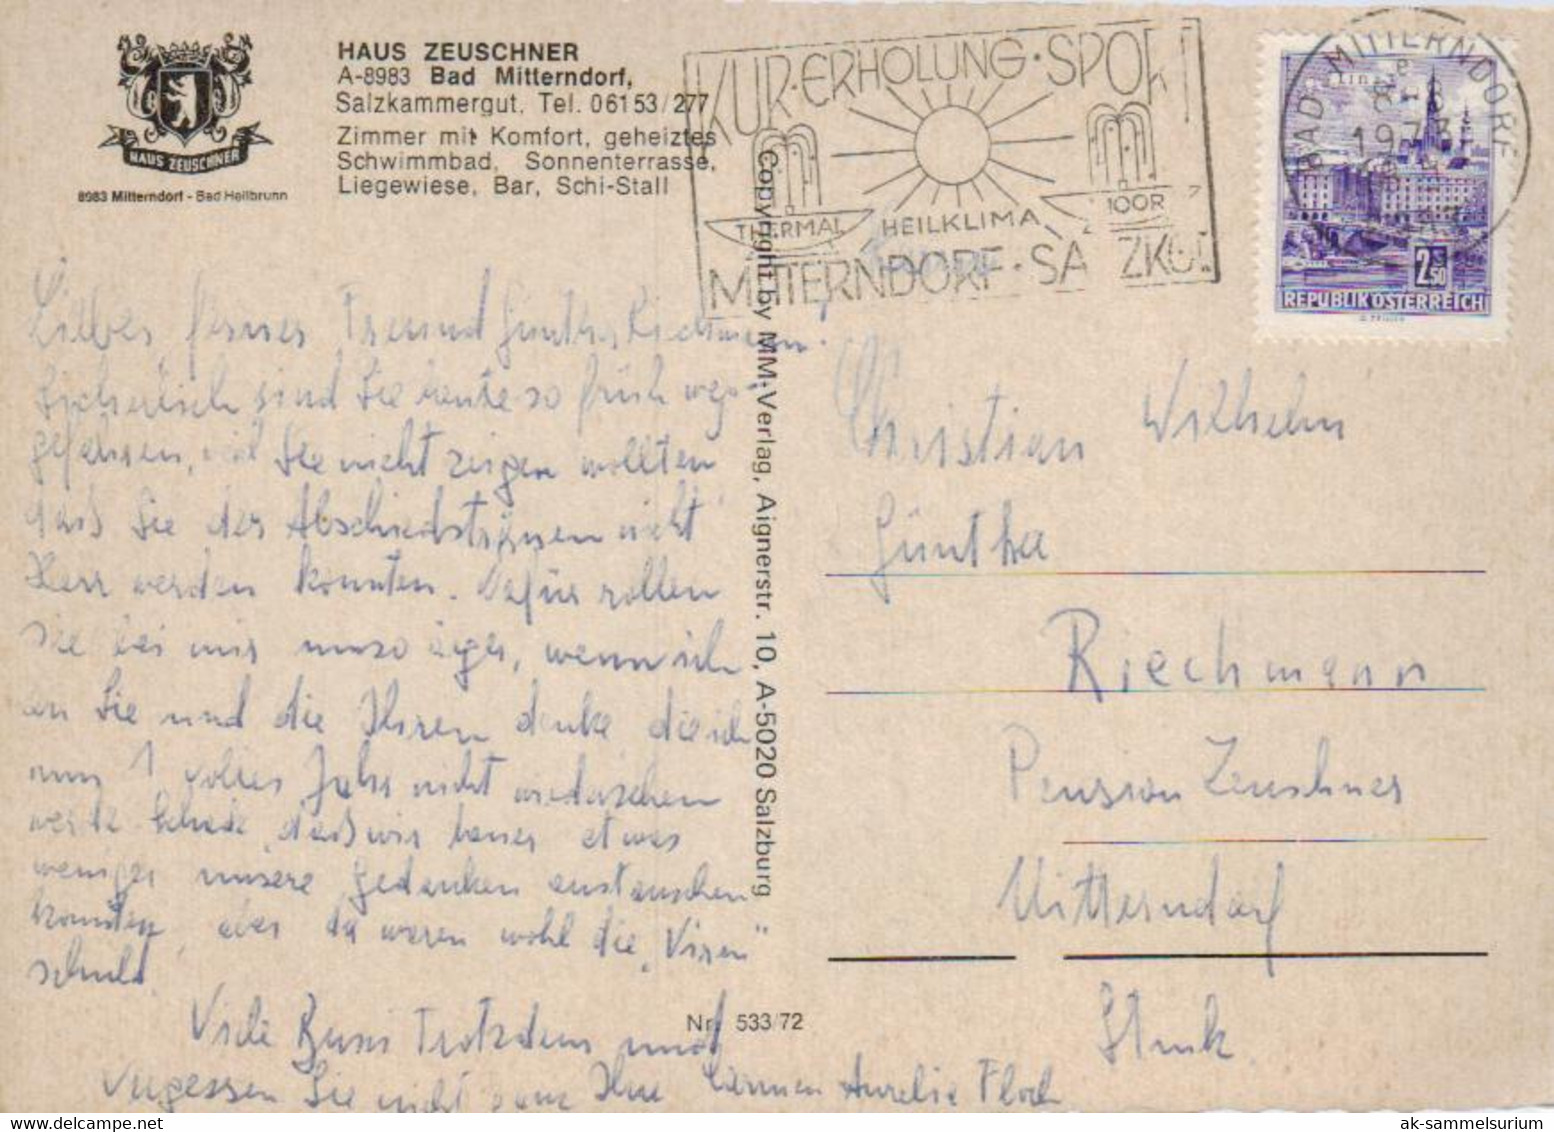 HAUS ZEUSCHNER
8983 Mitterndorf - Bad Heilbrunn
HAUS ZEUSCHNER
A-8983 Bad Mitterndorf,
Salzkammergut, Tel. 06153/277
Zimmer mit Komfort, geheiztes
Schwimmbad, Sonnenterrasse,
Liegewiese, Bar, Schi-Stall
KUR · ERHOLUNG · SPORT
THERMAL HEILKLIMA MOOR
MITTERNDORF · SA ZKG
BAD MITTERNDORF
1973
2.50
REPUBLIK ÖSTERREICH
Lieber, ferner Freund Günther Riechmann!
Sicherlich sind Sie heute so früh weg-
gefahren, weil Sie nicht zeigen wollten
daß Sie der Abschiedstränen nicht
Herr werden konnten. Dafür rollen
sie bei mir umso ärger, wenn ich
an Sie und die Ihren denke, die ich
nun 1 volles Jahr nicht wiedersehen
werde. Schade, daß wir heuer etwas
weniger unsere Gedanken austauschen
konnten, aber da waren wohl die „Viren"
schuld.
Viele Bussi Trotzdem und
vergessen Sie nicht ganz Ihre Carmen Aurelia Floch
Copyright by MM-Verlag, Aignerstr. 10, A-5020 Salzburg
Nr. 533/72
Christian Wilhelm
Günther
Riechmann
Pension Zeuschner
Mitterndorf
Stmk.
ak-sammelsurium